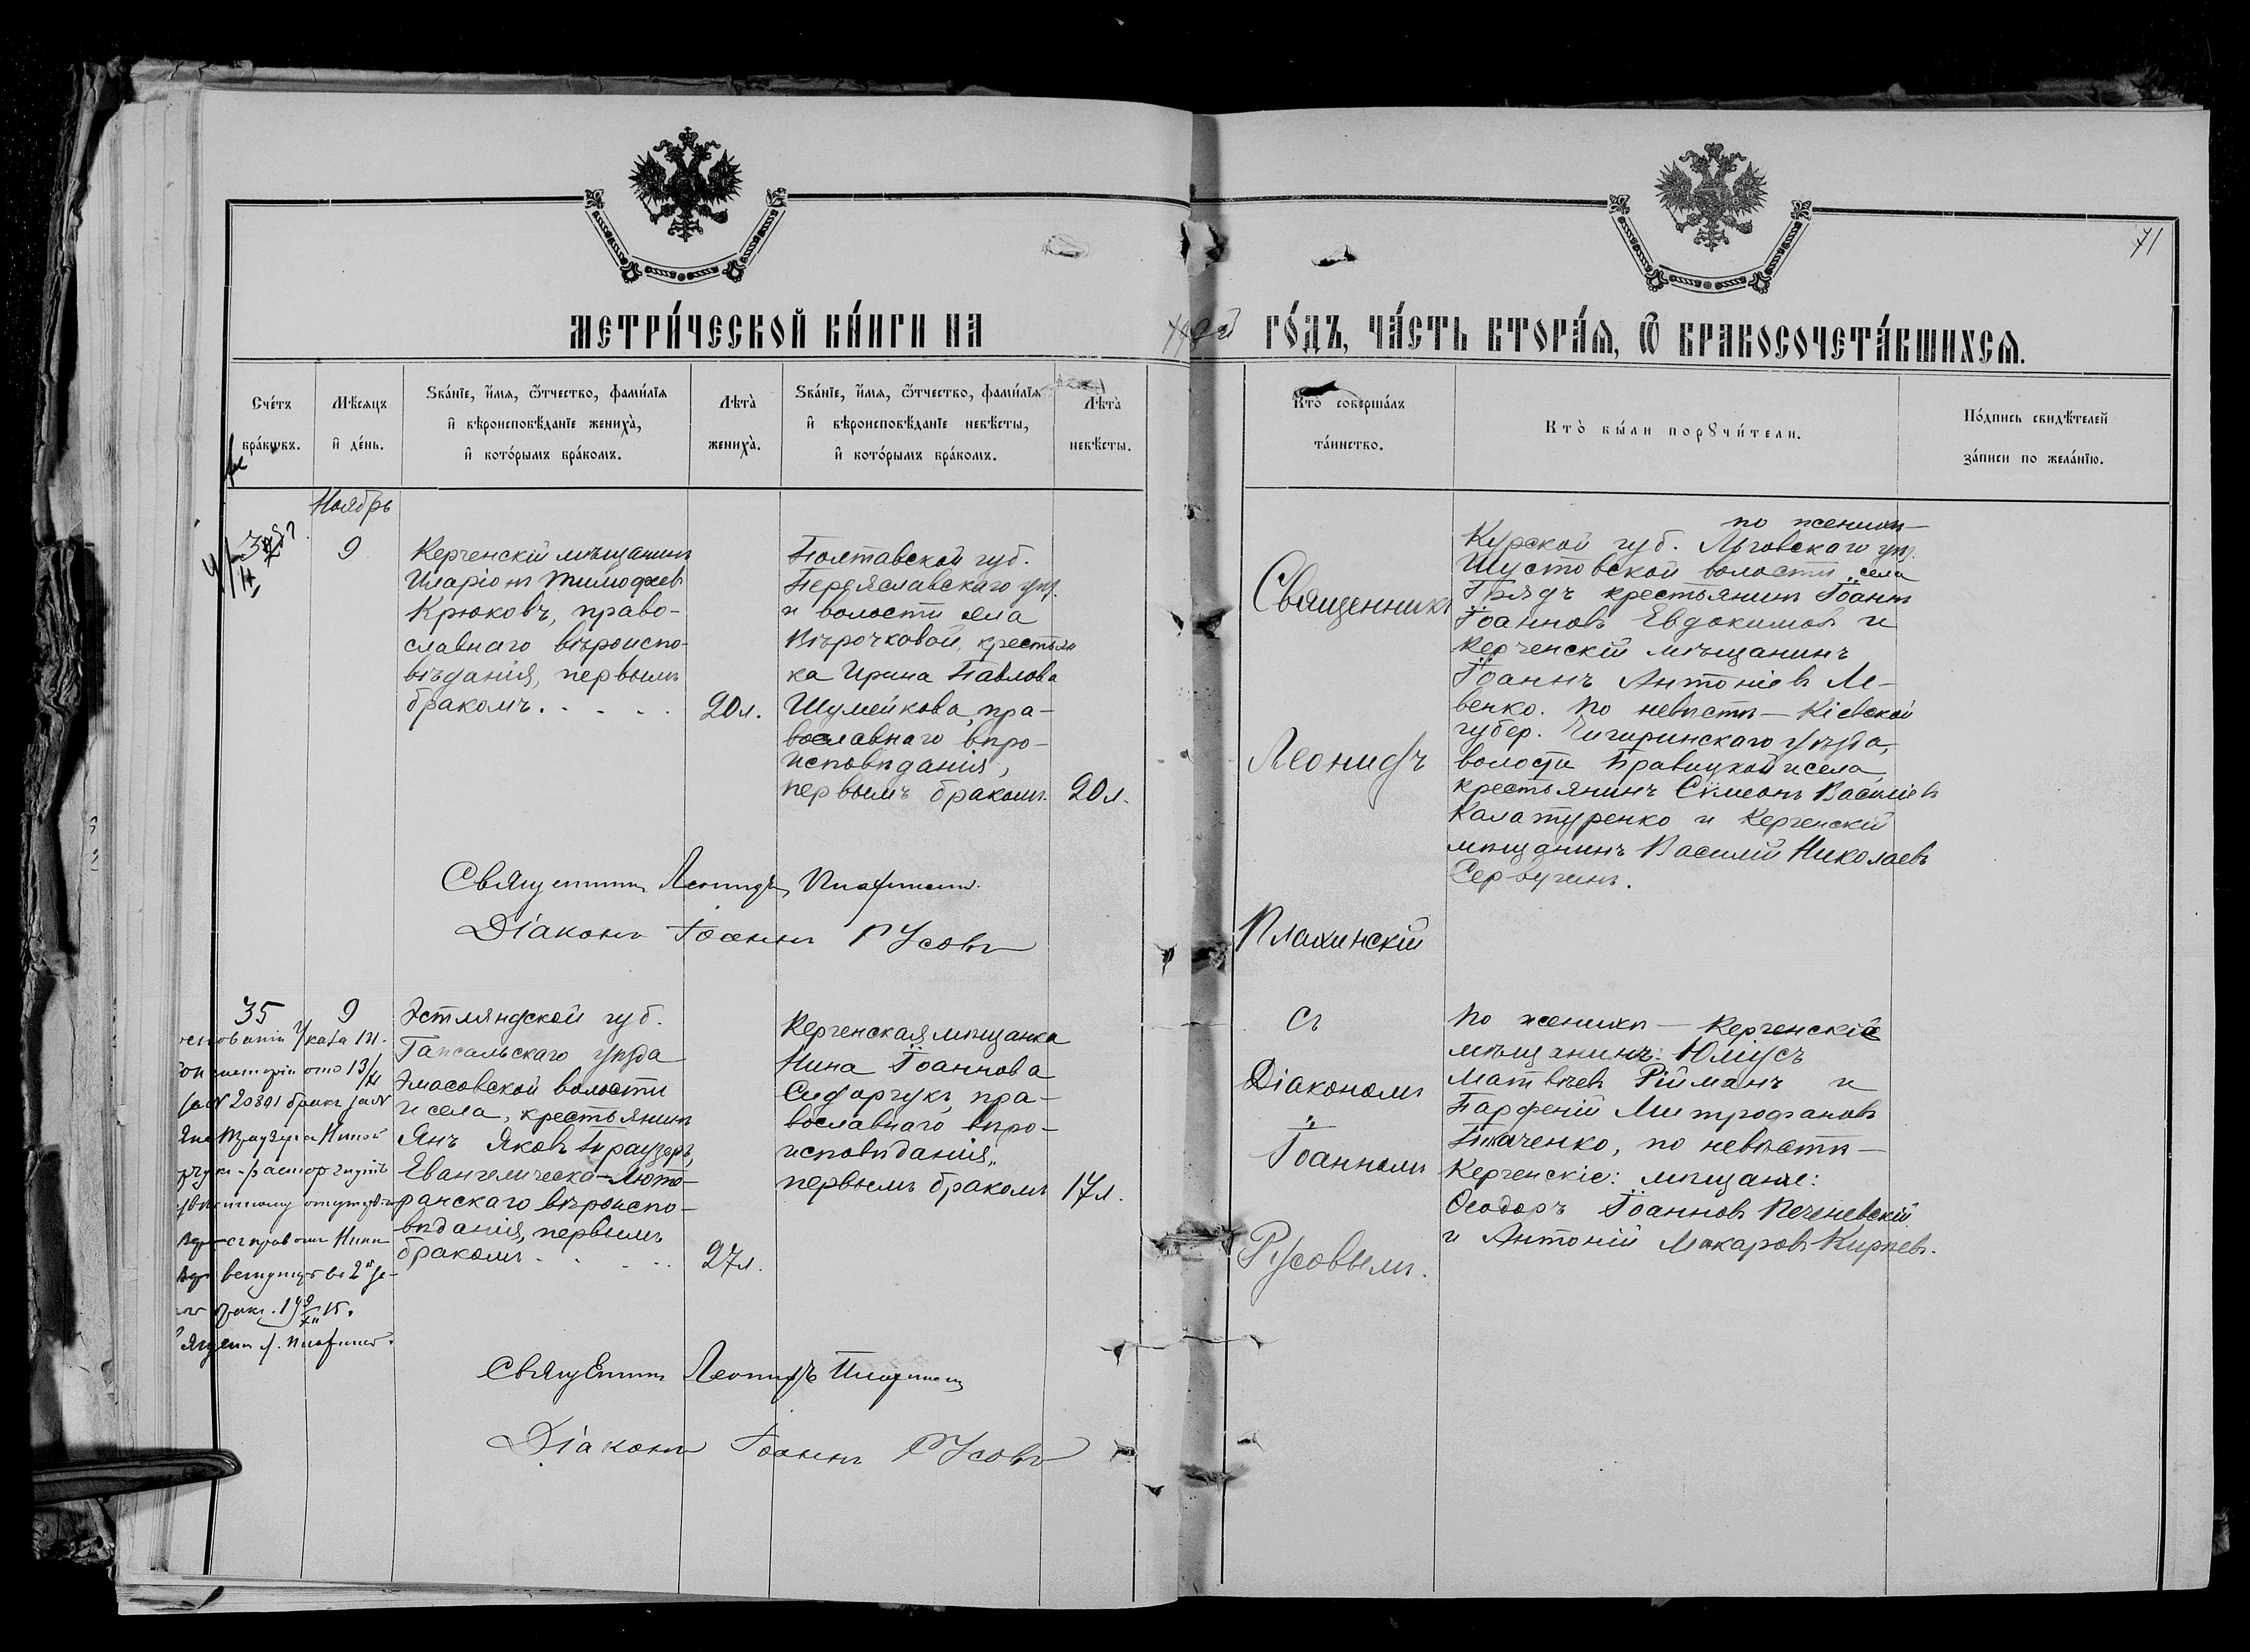 71
МЕТРИ́ЧЕСКОЙ КНИ́ГИ НА
ГО́ДЪ, ЧА́СТЬ ВТОРА́Я, Ѿ БРАКОСОЧЕТА́ВШИХСЯ.
Сче́тъ
бра́кѡвъ.
Мѣ́сяцъ
и҆ де́нь.
Ѕва́нїе, и҆́мя, ѻ҆́тчество, фами́лїя
и҆ вѣроисповѣ́данїе жениха̀,
и҆ кото́рымъ бра́комъ.
Лѣта̀
жениха̀.
Ѕва́нїе, и҆́мя, ѻ҆́тчество, фами́лїя
и҆ вѣроисповѣ́данїе невѣ́сты,
и҆ кото́рымъ бра́комъ.
Лѣта̀
невѣ́сты.
Кто̀ соверша́лъ
та́инство.
Кто̀ бы́ли порꙋчи́тели.
По́дпись свидѣ́телей
за́писи по жела́нїю.
Ноябрь
9
Керченскій мѣщанинъ
Иларіонъ Тимоѳеевъ
Крюковъ, право-
славнаго вѣроиспо-
вѣданія, первымъ
бракомъ. . . . .
20 л.
Полтавской губ.
Переяславскаго уѣз.
и волости села
крестьян
ка Ирина Павлова
Шумейкова, пра-
вославнаго вѣро-
исповѣданія,
первымъ бракомъ.
20 л.
Священникъ
Леонидъ
Плахинскій
съ
Діакономъ
Іоанномъ
Русовымъ.
по жениху —
Курской губ. Льговскаго уѣз.
Шустовской волости, села
крестьянинъ Іоаннъ
Іоанновъ Евдокимовъ и
Керченскій мѣщанинъ
Іоаннъ Антоніевъ Ле-
венко. По невѣстѣ — Кіевской
губер. Чигиринскаго уѣзда,
волости и села,
крестьянинъ Сѵмеонъ Василіевъ
Калатуренко и Керченскій
мѣщанинъ Василій Николаевъ
Священникъ Леонидъ Плахинскій.
Діаконъ Іоаннъ Русовъ
35
9
Эстляндской губ.
Гапсальскаго уѣзда
волости
и села, крестьянинъ
Янъ Яковъ
Евангелическо-Люте-
ранскаго вѣроиспо-
вѣданія, первымъ
бракомъ. . . . .
27 л.
Керченская мѣщанка
Нина Іоаннова
Сидорчукъ, пра-
вославнаго вѣро-
исповѣданія,
первымъ бракомъ
17 л.
По жениху — Керченскіе
мѣщанинъ: Юліусъ
Матвѣевъ Рійманъ и
Парфеній Митрофановъ
Ткаченко, по невѣстѣ —
Керченскіе: мѣщане:
Ѳеодоръ Іоанновъ Печеневскій
и Антоній Макаровъ
указа
13/XI
20801 бракъ
Ниной
Священникъ Леонидъ Плахинскій
Діаконъ Іоаннъ Русовъ